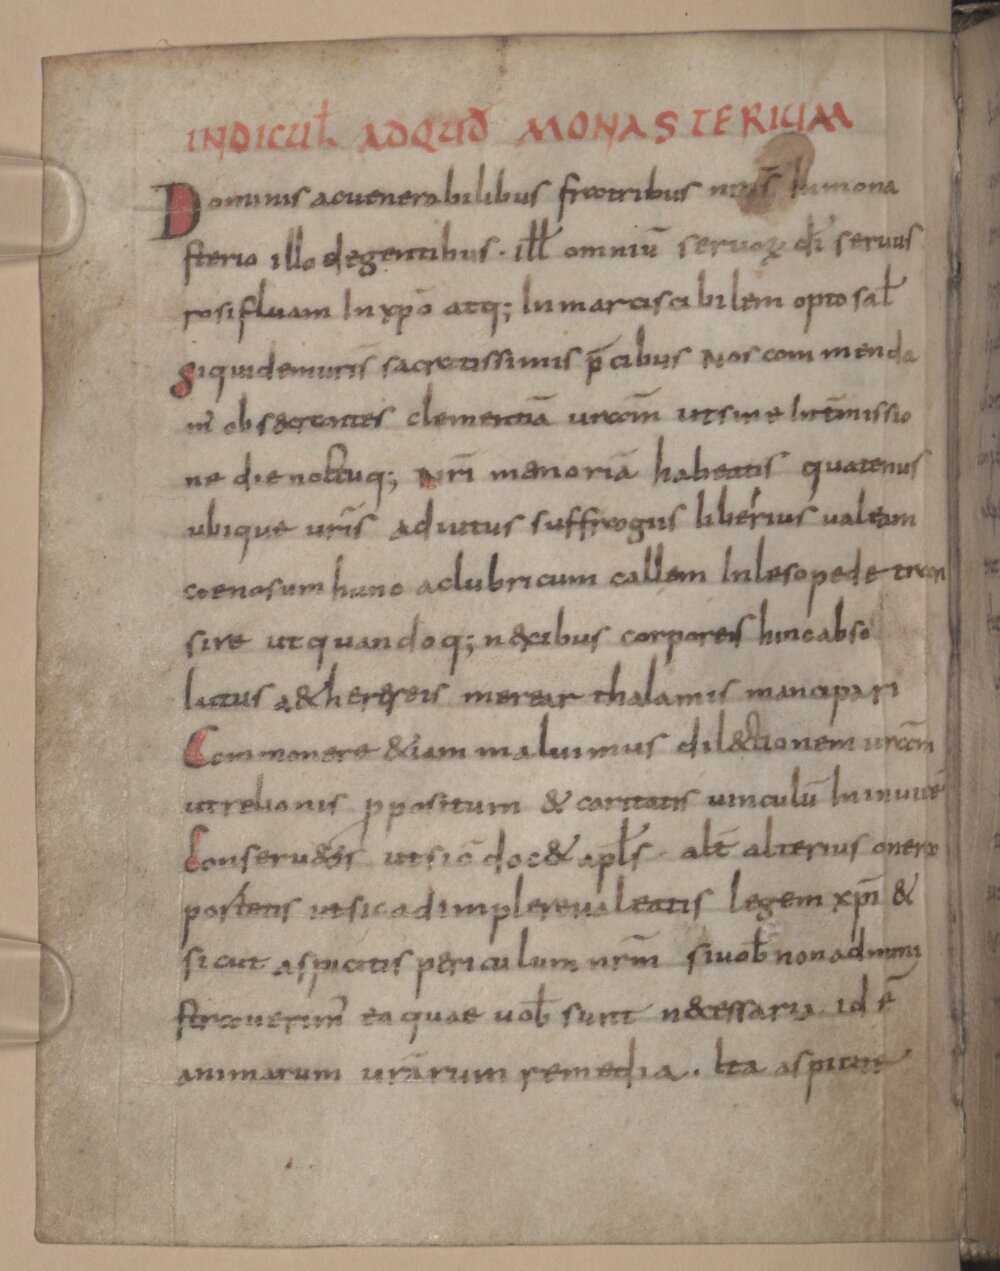 INDICUL̄ ADQUD̄ MONASTERIUM
Dominis acuenerabilibus fratribus nr̄is Inmona
sterio illo degentibus · ill̄ omniū seruoꝝ dī seruus
rosifluam In xp̄o atq; Inmarciscibilem opto sal̄
Siquidemur̄is sacratissimis p̄cibus Nos commenda
m̄ obsecrantes clementiā urām ut sine Int̄missio
ne die noctuq; Nr̄i memoriā habeatis quatenus
ubique ur̄is adiutus suffragiis liberius ualeam
coenosum hunc aclubricum callem Inleso pede tran
sire ut quandoq; n&xibus corporeis hinc abso
lutus a&hereis merear thalamis mancipari
Commonere &iam maluimus dil&tionem urām
ut relionis ꝓpositum & caritatis uinculū Inuiuē
Conseru&is ut sic̄ doc& apl̄s · alt̄ alterius onera
portetis ut sic adimplere ualeatis legem xp̄i &
sicut aspicitis periculum nr̄m si uob̄ non admini
strauerim̄ ea quae uob̄ sunt n&cessaria id ē
animarum urārum remedia. Ita aspicite